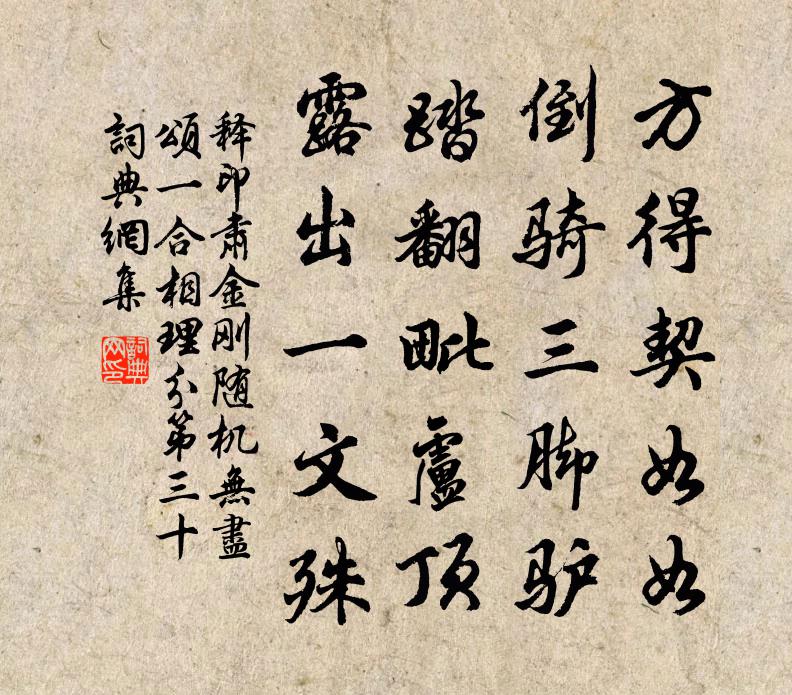 方得契如如
倒骑三脚驴
踏翻毗盧顶
露出一文殊
释印肃金刚随机無盡
頌一合相理分第三十
詞典網集
詞典
网印